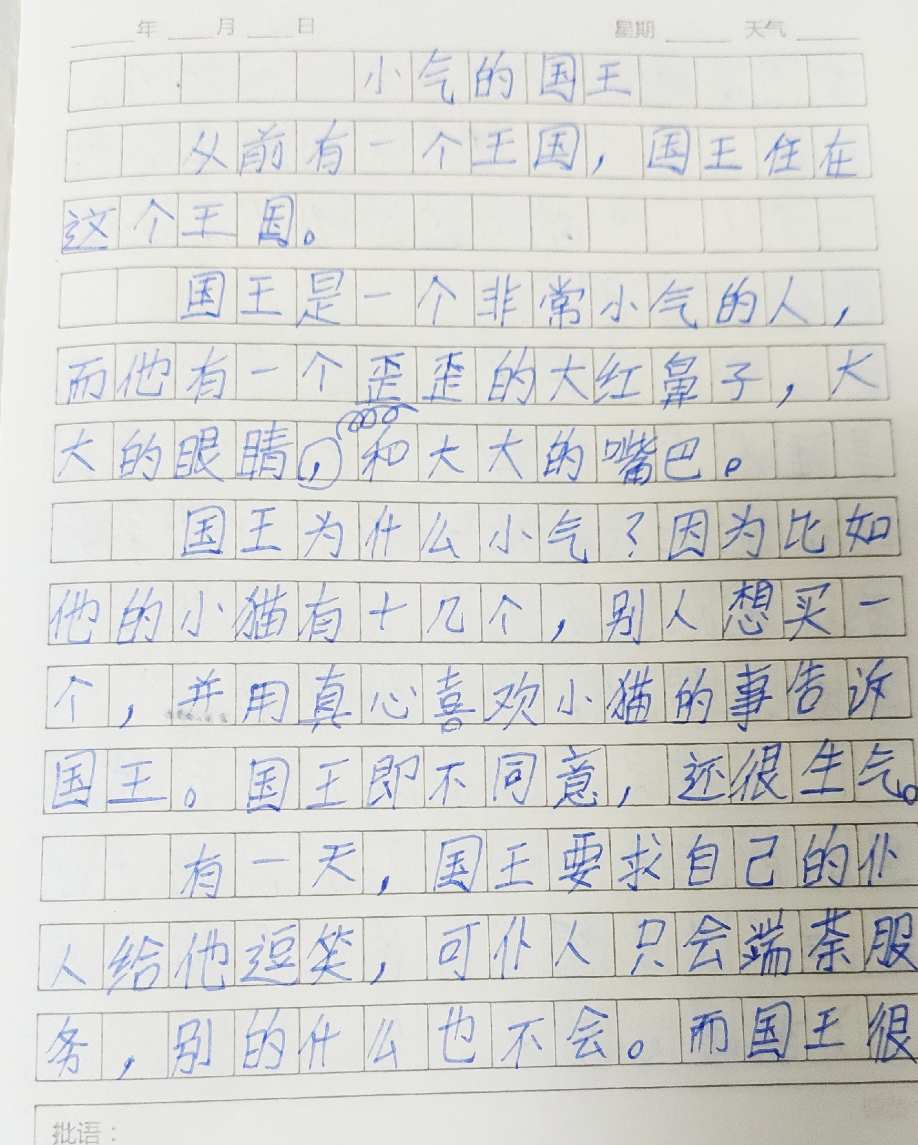 年 月 日 星期 天气
小气的国王
从前有一个王国，国王住在
这个王国。
国王是一个非常小气的人，
而他有一个歪歪的大红鼻子，大
大的眼睛，和大大的嘴巴。
国王为什么小气？因为比如
他的小猫有十几个，别人想买一
个，并用真心喜欢小猫的事告诉
国王。国王即不同意，还很生气。
有一天，国王要求自己的仆
人给他逗笑，可仆人只会端茶服
务，别的什么也不会。而国王很
批语：